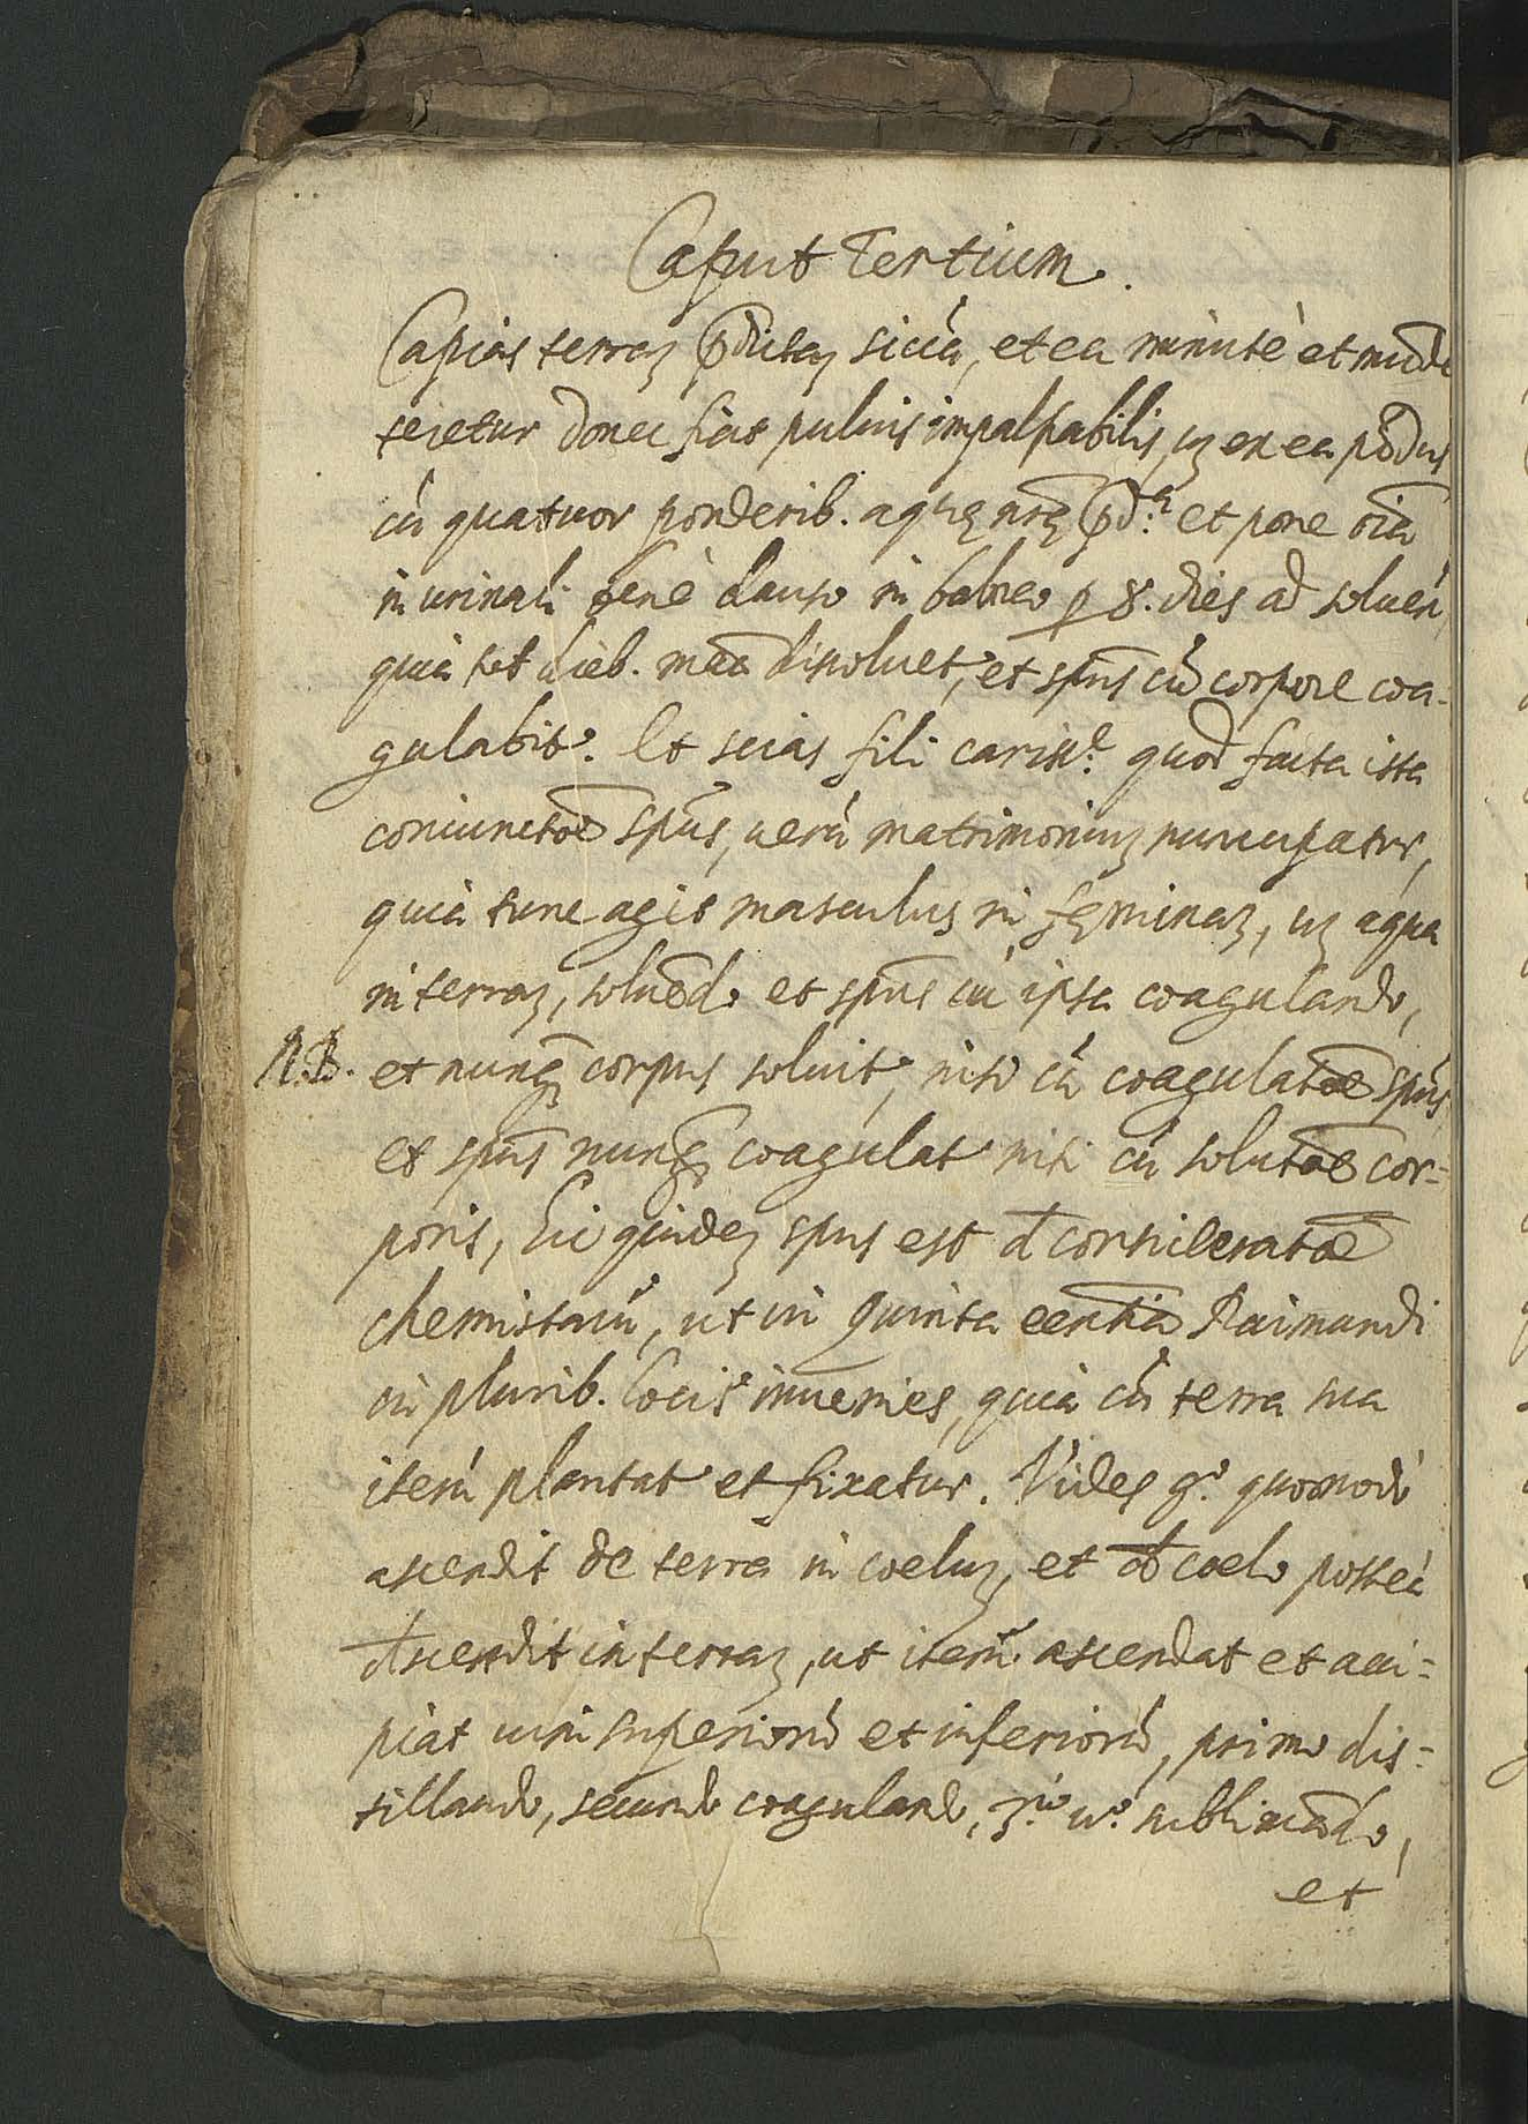 Caput Tertium.
Capias terraʒ p̄dictaʒ siccā, et ea minutè et mūde
teretur donec fiat puluis impalpabilis, uʒ ex ea pōdus
cū quatuor ponderib. aquę nr̄ę p̄d.ᵃ et pone oīa
in urinali benè clauso in balneo p 8. dies ad soluen
quia tot dieb. mā dissoluet.ʳ, et spūs cū corpore coa-
gulabit.ʳ Et scias fili cariss.ᵉ quod facta ista
coniunctōe spūs, uerū matrimoniuʒ nuncupatur,
quia tunc agit masculus in fęminaʒ, uʒ aqua
in terraʒ, soluēdo et spūs cū ipsa coagulando,
N.B. et nunq̄ corpus soluit.ʳ, nisi cū coagulatōe spūs
et spūs nunq̄ coagulat.ʳ nisi cū solutōe cor-
poris, hic quideʒ spūs est d̄ consideratōe
chemistarū, ut in quinta eēntia Raimundi
in plurib. locis inuenies, quia cū terra sua
iterū plantat.ʳ et fixatur. Vides g.º quomodo
ascendit de terra in coeluʒ, et d̄ coelo posteà
d̄scendit in terraʒ, ut iterū ascendat et acci-
piat uim superiorū et inferiorū, primo dis-
tillando, secundo coagulando, 3.º u.º sublimādo,
et